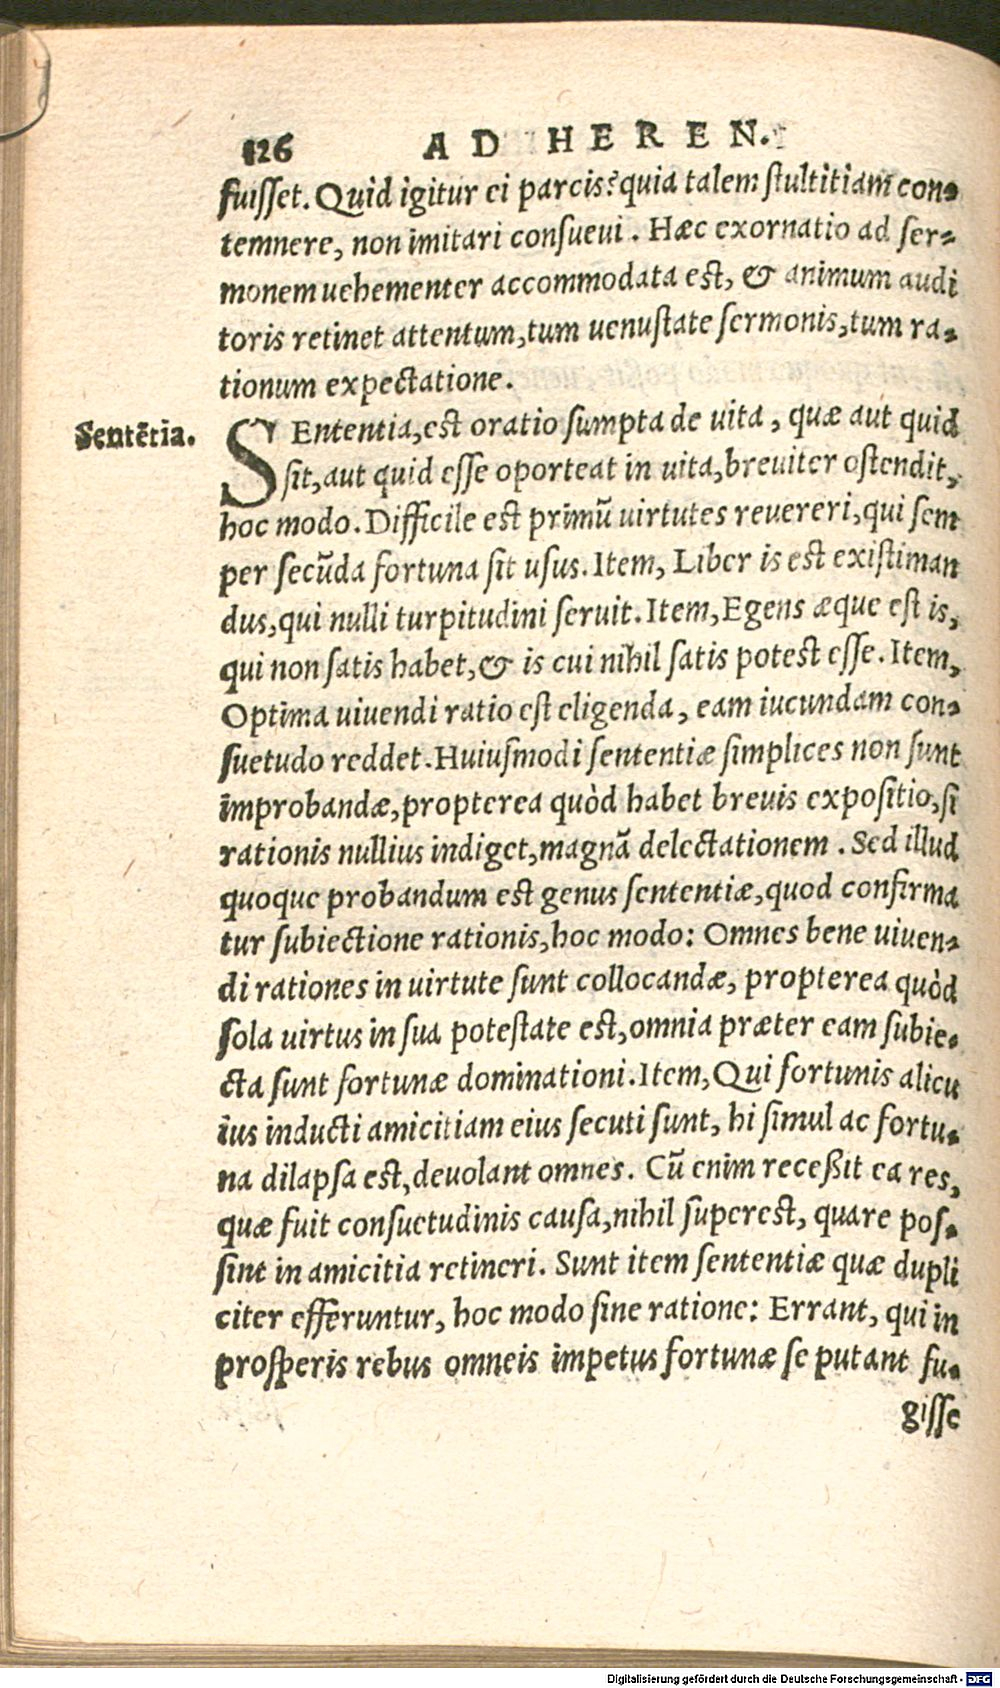 126 AD HEREN.
fuisset. Quid igitur ei parcis? quia talem stultitiam con-
temnere, non imitari consueui. Hæc exornatio ad ser-
monem uehementer accommodata est, & animum audi
toris retinet attentum, tum uenustate sermonis, tum ra-
tionum expectatione.
Sentētia.
SEntentia, est oratio sumpta de uita, quæ aut quid
sit, aut quid esse oporteat in uita, breuiter ostendit,
hoc modo. Difficile est primū uirtutes reuereri, qui sem
per secūda fortuna sit usus. Item, Liber is est existiman
dus, qui nulli turpitudini seruit. Item, Egens æque est is,
qui non satis habet, & is cui nihil satis potest esse. Item,
Optima uiuendi ratio est eligenda, eam iucundam con-
suetudo reddet. Huiusmodi sententiæ simplices non sunt
improbandæ, propterea quòd habet breuis expositio, si
rationis nullius indiget, magnā delectationem. Sed illud
quoque probandum est genus sententiæ, quod confirma
tur subiectione rationis, hoc modo: Omnes bene uiuen-
di rationes in uirtute sunt collocandæ, propterea quòd
sola uirtus in sua potestate est, omnia præter eam subie-
cta sunt fortunæ dominationi. Item, Qui fortunis alicu
ius inducti amicitiam eius secuti sunt, hi simul ac fortu-
na dilapsa est, deuolant omnes. Cū enim receßit ea res,
quæ fuit consuetudinis causa, nihil superest, quare pos-
sint in amicitia retineri. Sunt item sententiæ quæ dupli
citer efferuntur, hoc modo sine ratione: Errant, qui in
prosperis rebus omneis impetus fortunæ se putant fu-
gisse
Digitalisierung gefördert durch die Deutsche Forschungsgemeinschaft - DFG